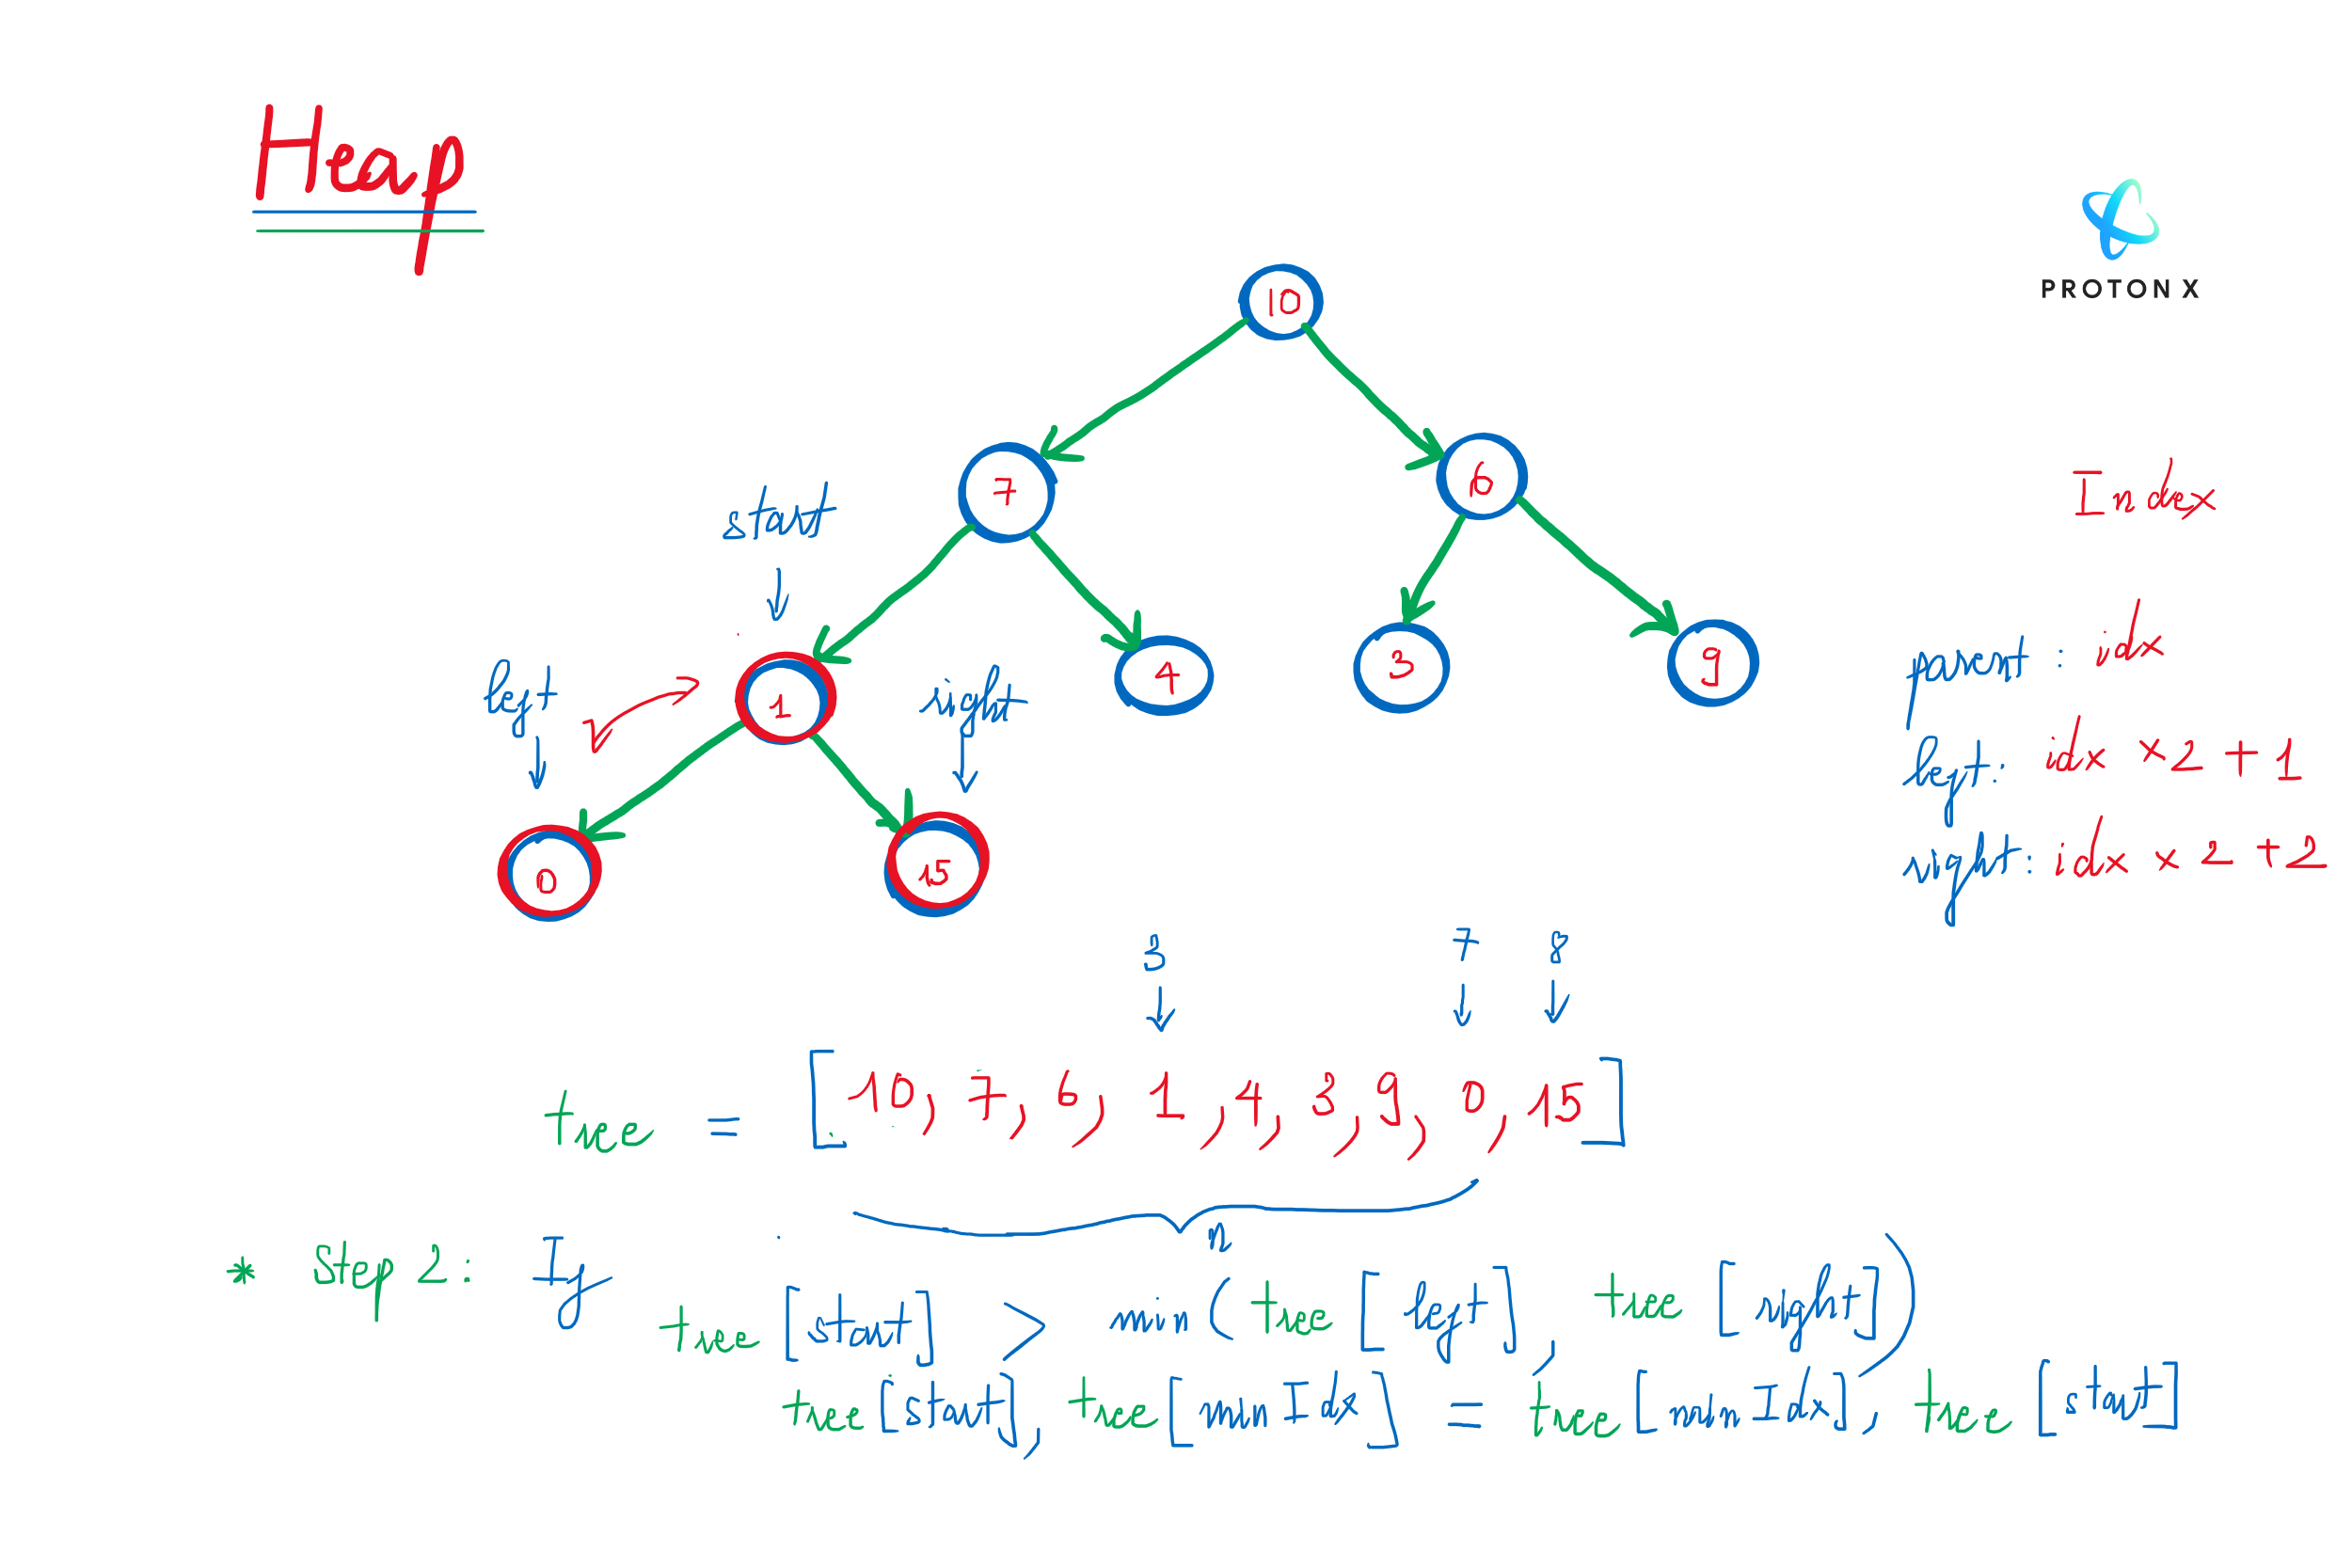 Heap
PROTON X
10
7
6
start
Index
left
1
right
4
3
9
parent : idx
left : idx × 2 + 1
0
15
right : idx × 2 + 2
3 7 8
tree = [10, 7, 6, 1, 4, 3, 9, 0, 15]
n
* Step 2 : If
tree [start] > min (tree [left], tree [right])
tree [start], tree [minIdx] = tree [minIdx], tree [start]